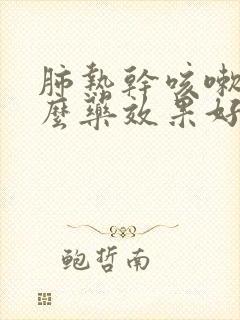 肺熱幹咳嗽
麼藥效果好
鲍哲南